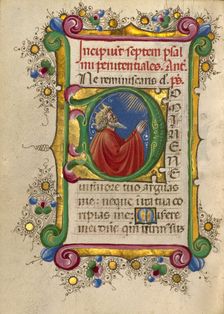 Incipiunt septem psal
mi penitentiales. Ant.
Ne reminiscaris d. ps.
D OMINE NE
in furore tuo arguas
me: neque in ira tua co
ripias me. Misere
mei dne qm infirmus